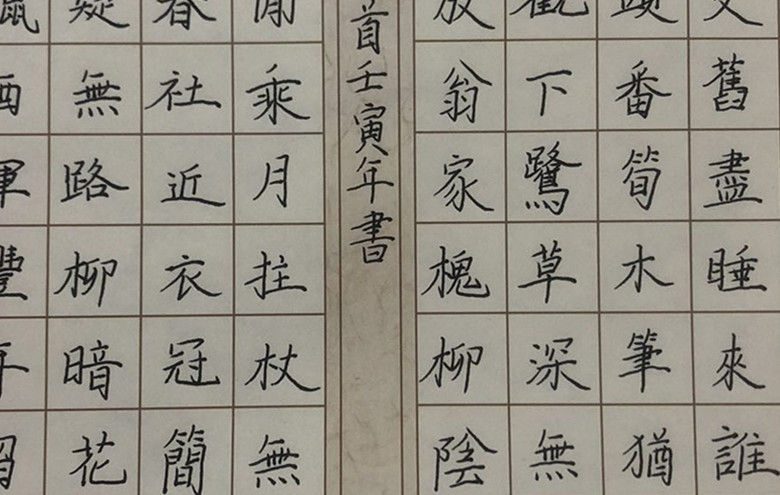 舊盡睡來誰
番筍木筆猶
下鷺草深無
放翁家槐柳陰
首壬寅年書
閒乘月拄杖無
春社近衣冠簡
疑無路柳暗花